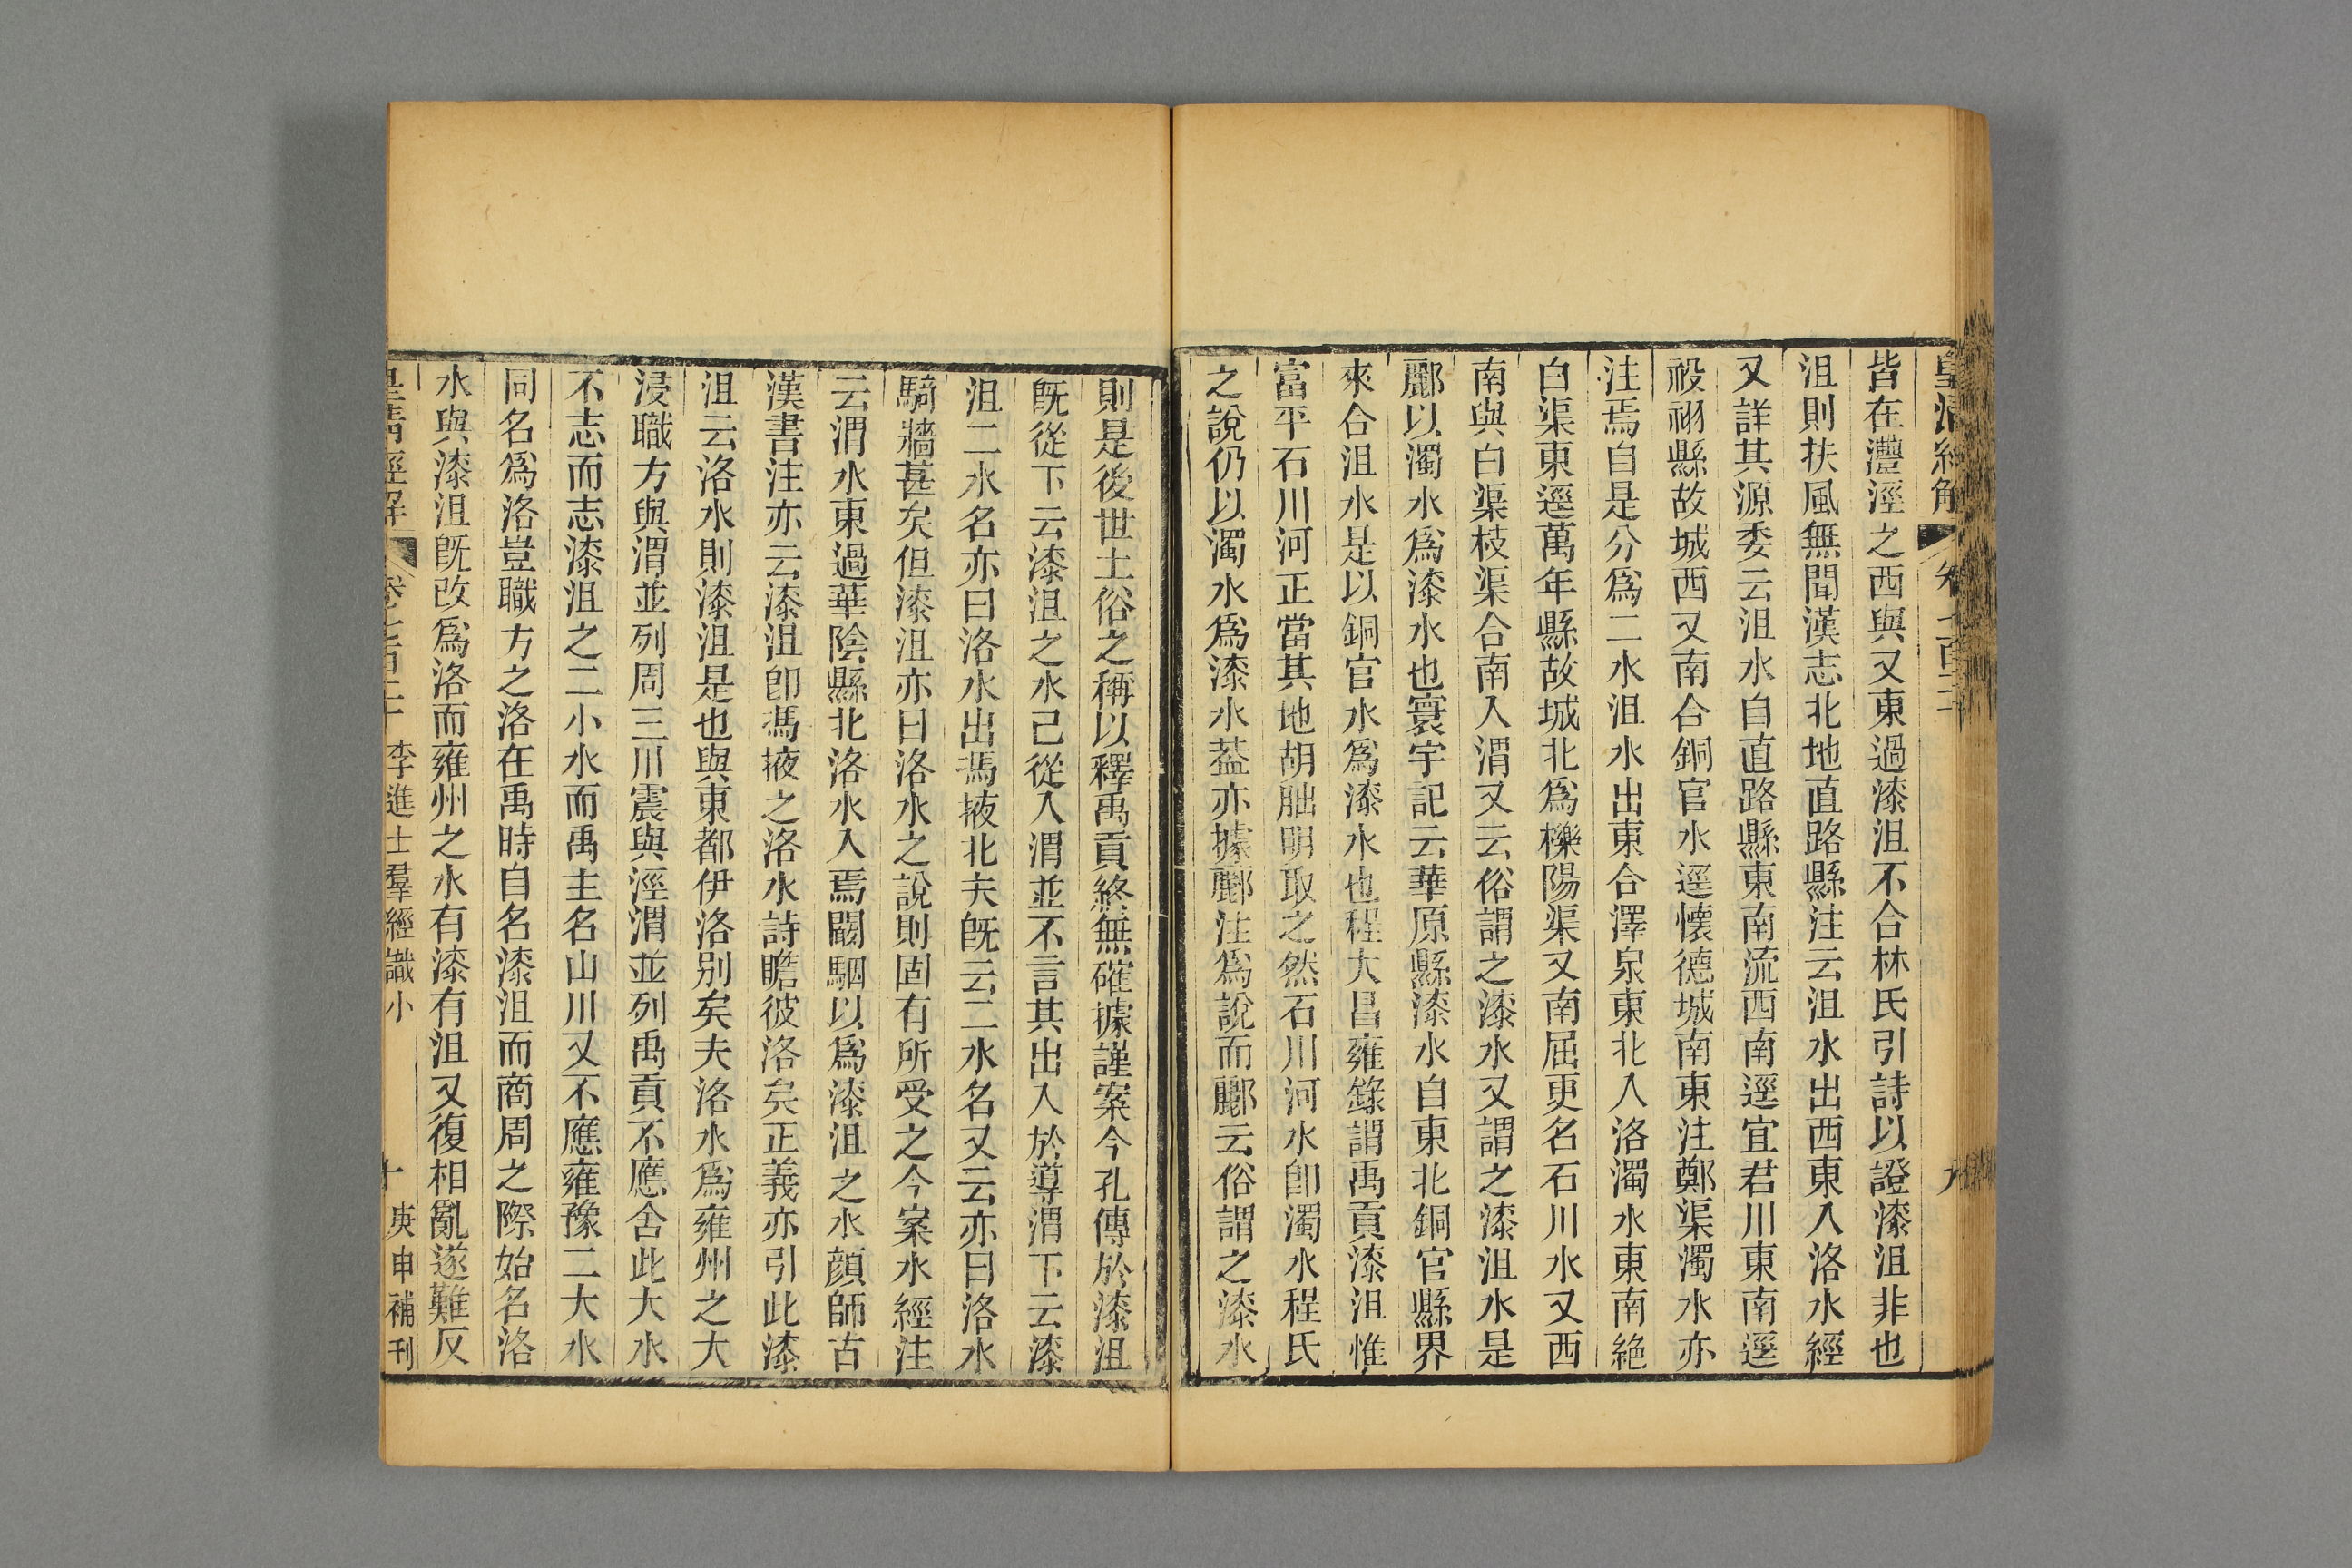 皇清經解
卷七百二十
九
皆在灃涇之西與又東過漆沮不合林氏引詩以證漆沮非也
沮則扶風無聞漢志北地直路縣注云沮水出西東入洛水經
又詳其源委云沮水自直路縣東南流西南逕宜君川東南逕
祋祤縣故城西又南合銅官水逕懷德城南東注鄭渠濁水亦
注焉自是分爲二水沮水出東合澤泉東北入洛濁水東南絶
白渠東逕萬年縣故城北爲櫟陽渠又南屈更名石川水又西
南與白渠枝渠合南入渭又云俗謂之漆水又謂之漆沮水是
酈以濁水爲漆水也寰宇記云華原縣漆水自東北銅官縣界
來合沮水是以銅官水爲漆水也程大昌雍錄謂禹貢漆沮惟
富平石川河正當其地胡朏明取之然石川河水卽濁水程氏
之說仍以濁水爲漆水葢亦據酈注爲說而酈云俗謂之漆水
則是後世土俗之稱以釋禹貢終無確據謹案今孔傳於漆沮
旣從下云漆沮之水已從入渭並不言其出入於導渭下云漆
沮二水名亦曰洛水出馮掖北夫旣云二水名又云亦曰洛水
騎牆甚矣但漆沮亦曰洛水之說則固有所受之今案水經注
云渭水東過華陰縣北洛水入焉闞駰以爲漆沮之水顔師古
漢書注亦云漆沮卽馮掖之洛水詩瞻彼洛矣正義亦引此漆
沮云洛水則漆沮是也與東都伊洛別矣夫洛水爲雍州之大
浸職方與渭並列周三川震與涇渭並列禹貢不應舍此大水
不志而志漆沮之二小水而禹主名山川又不應雍豫二大水
同名爲洛豈職方之洛在禹時自名漆沮而商周之際始名洛
水與漆沮旣改爲洛而雍州之水有漆有沮又復相亂遂難反
皇清經解
卷七百二十
李進士羣經識小
十
庚申補刊